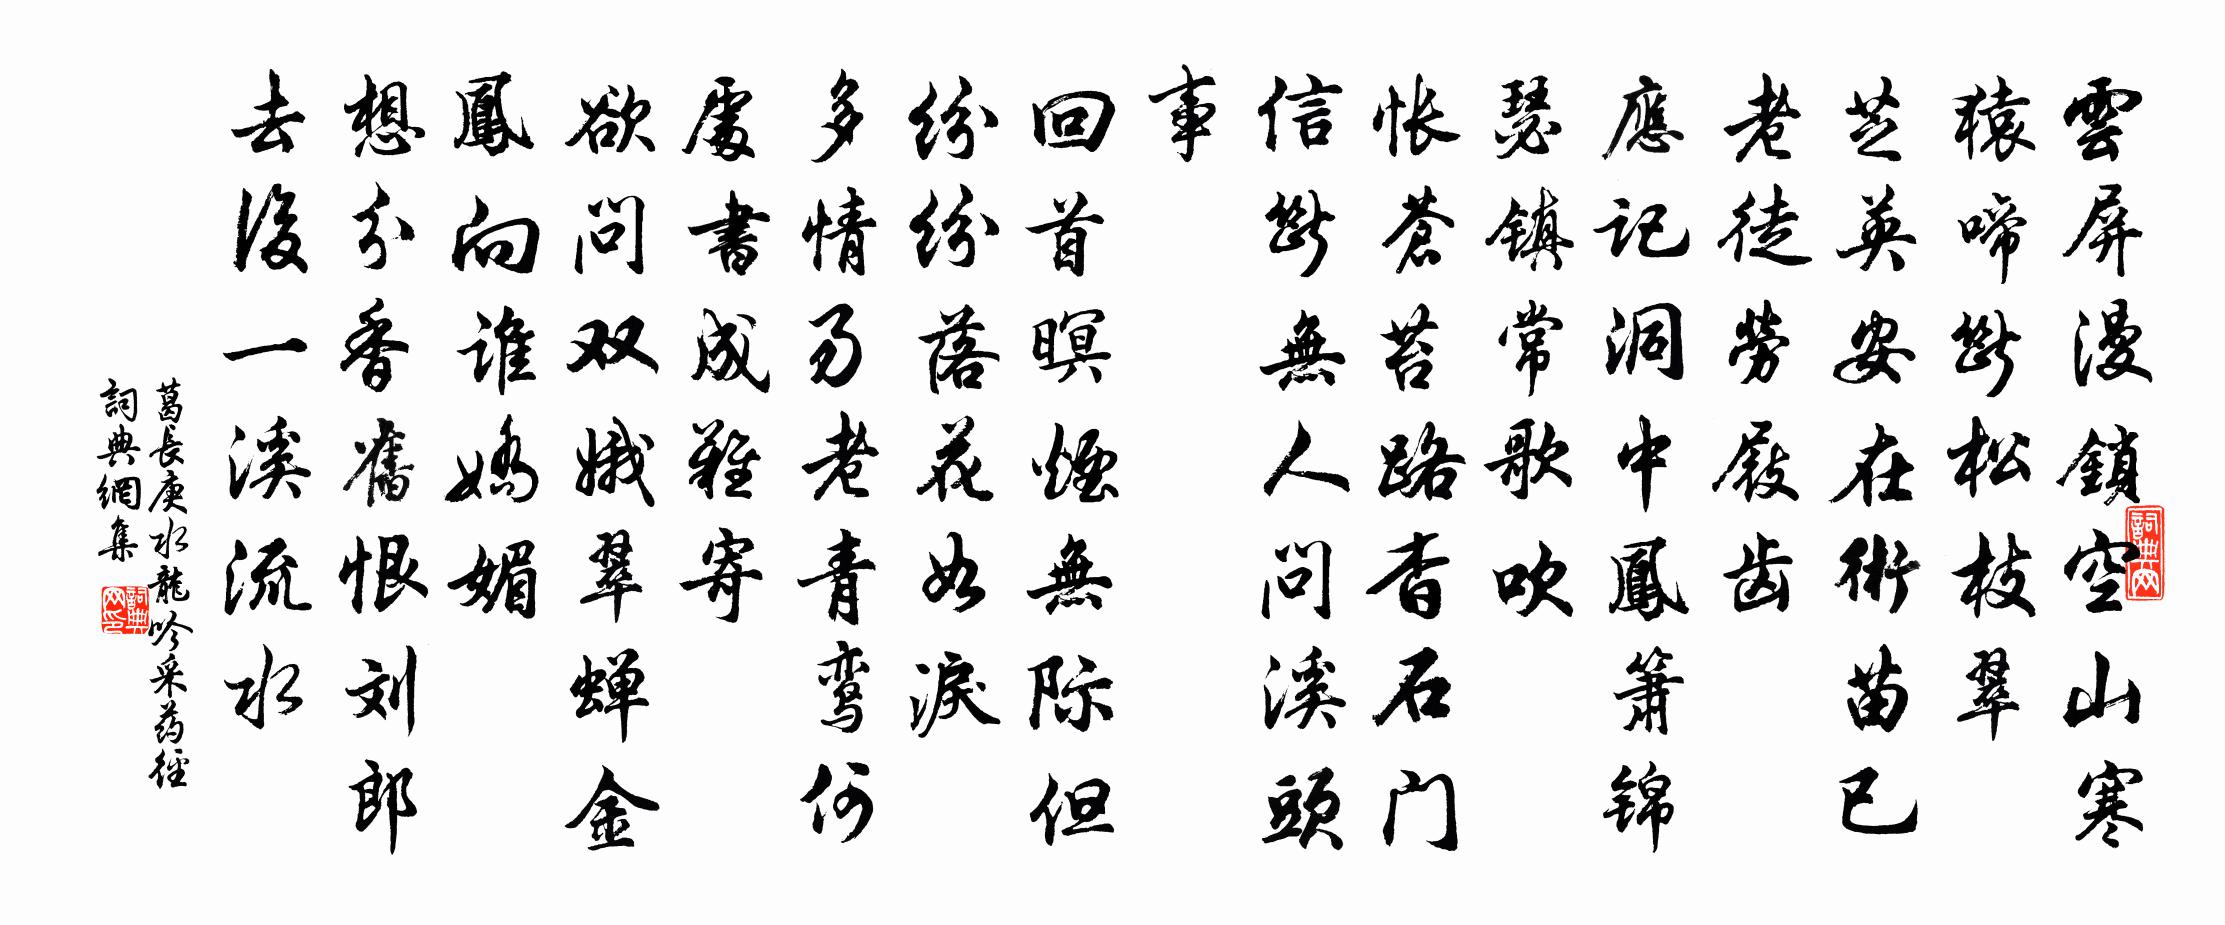 雲屏漫鎖空山寒
猿啼斷松枝翠
芝英安在術苗已
老徒勞屐齿
應記洞中鳳簫锦
瑟镇常歌吹
怅蒼苔路杳石门
信斷無人问溪頭
事
回首暝煙無际但
纷纷落花如淚
多情易老青鸾何
處書成難寄
欲问双娥翠蝉金
鳳向谁嬌媚
想分香舊恨刘郎
去後一溪流水
葛長庚水龍吟采药徑
詞典網集
詞典网
詞典网印